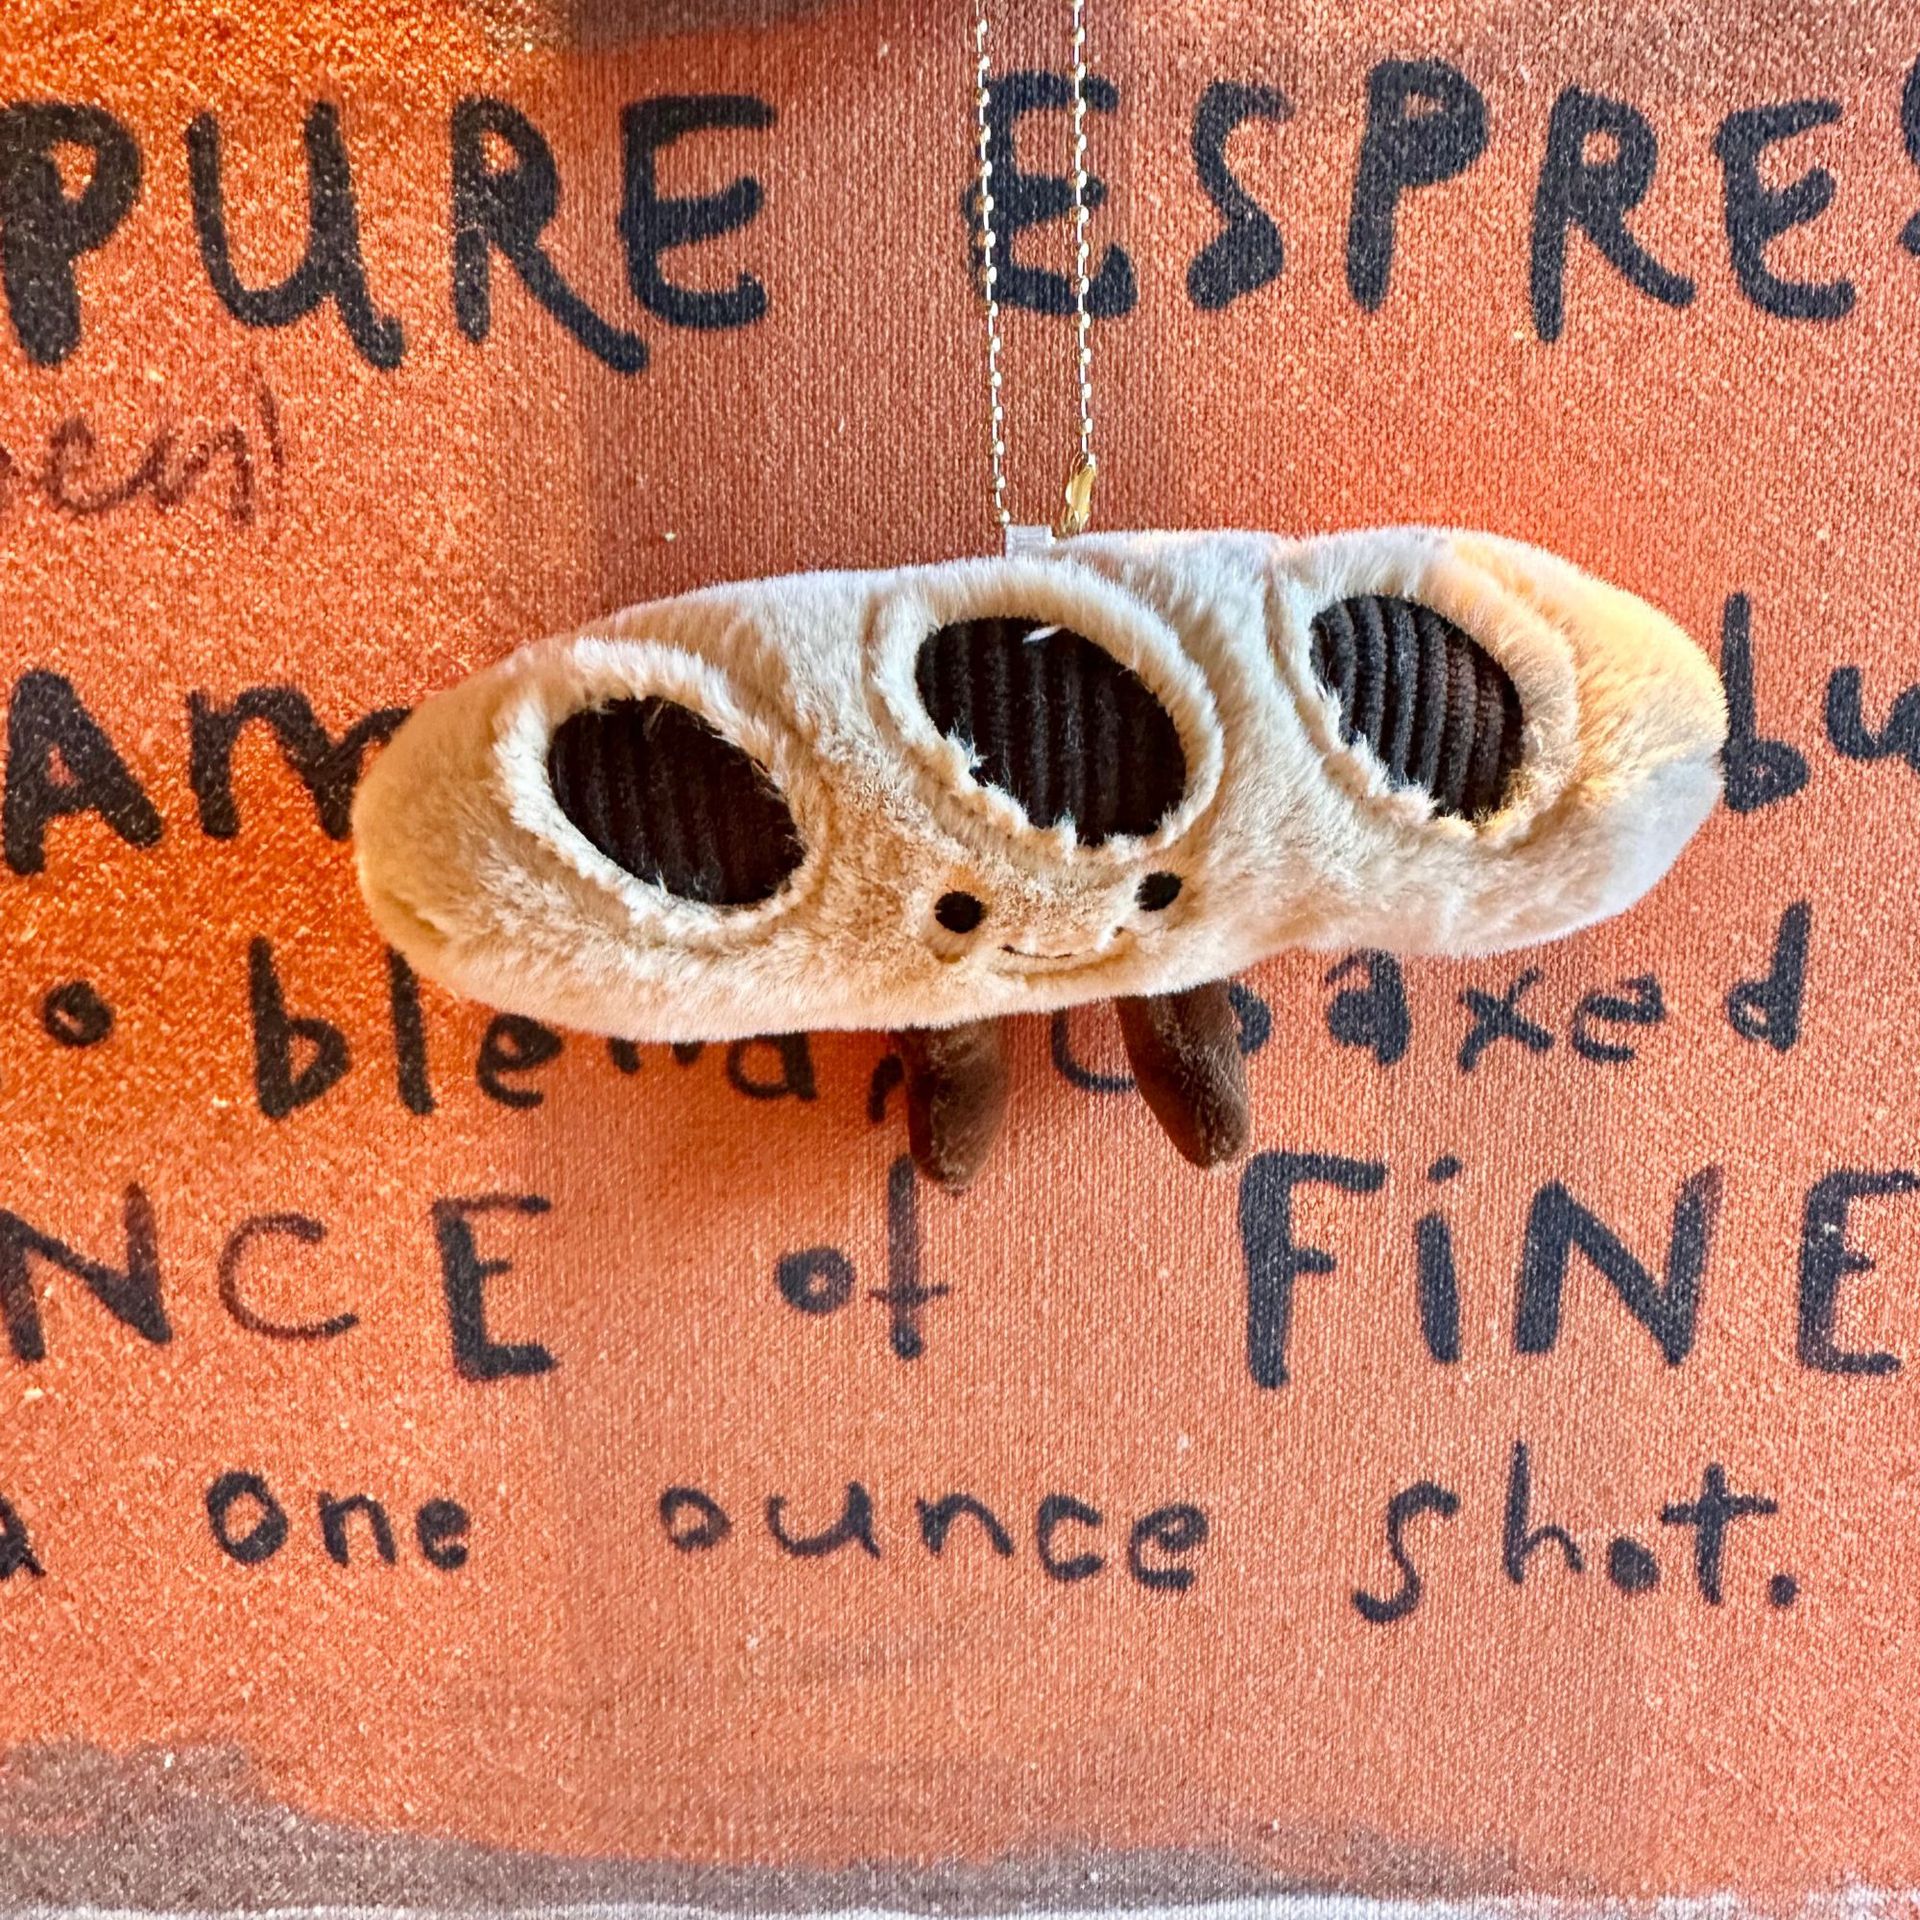 PURE ESPRES
Am bu
o blend, coaxed
NCE of FiNE
a one ounce shot.